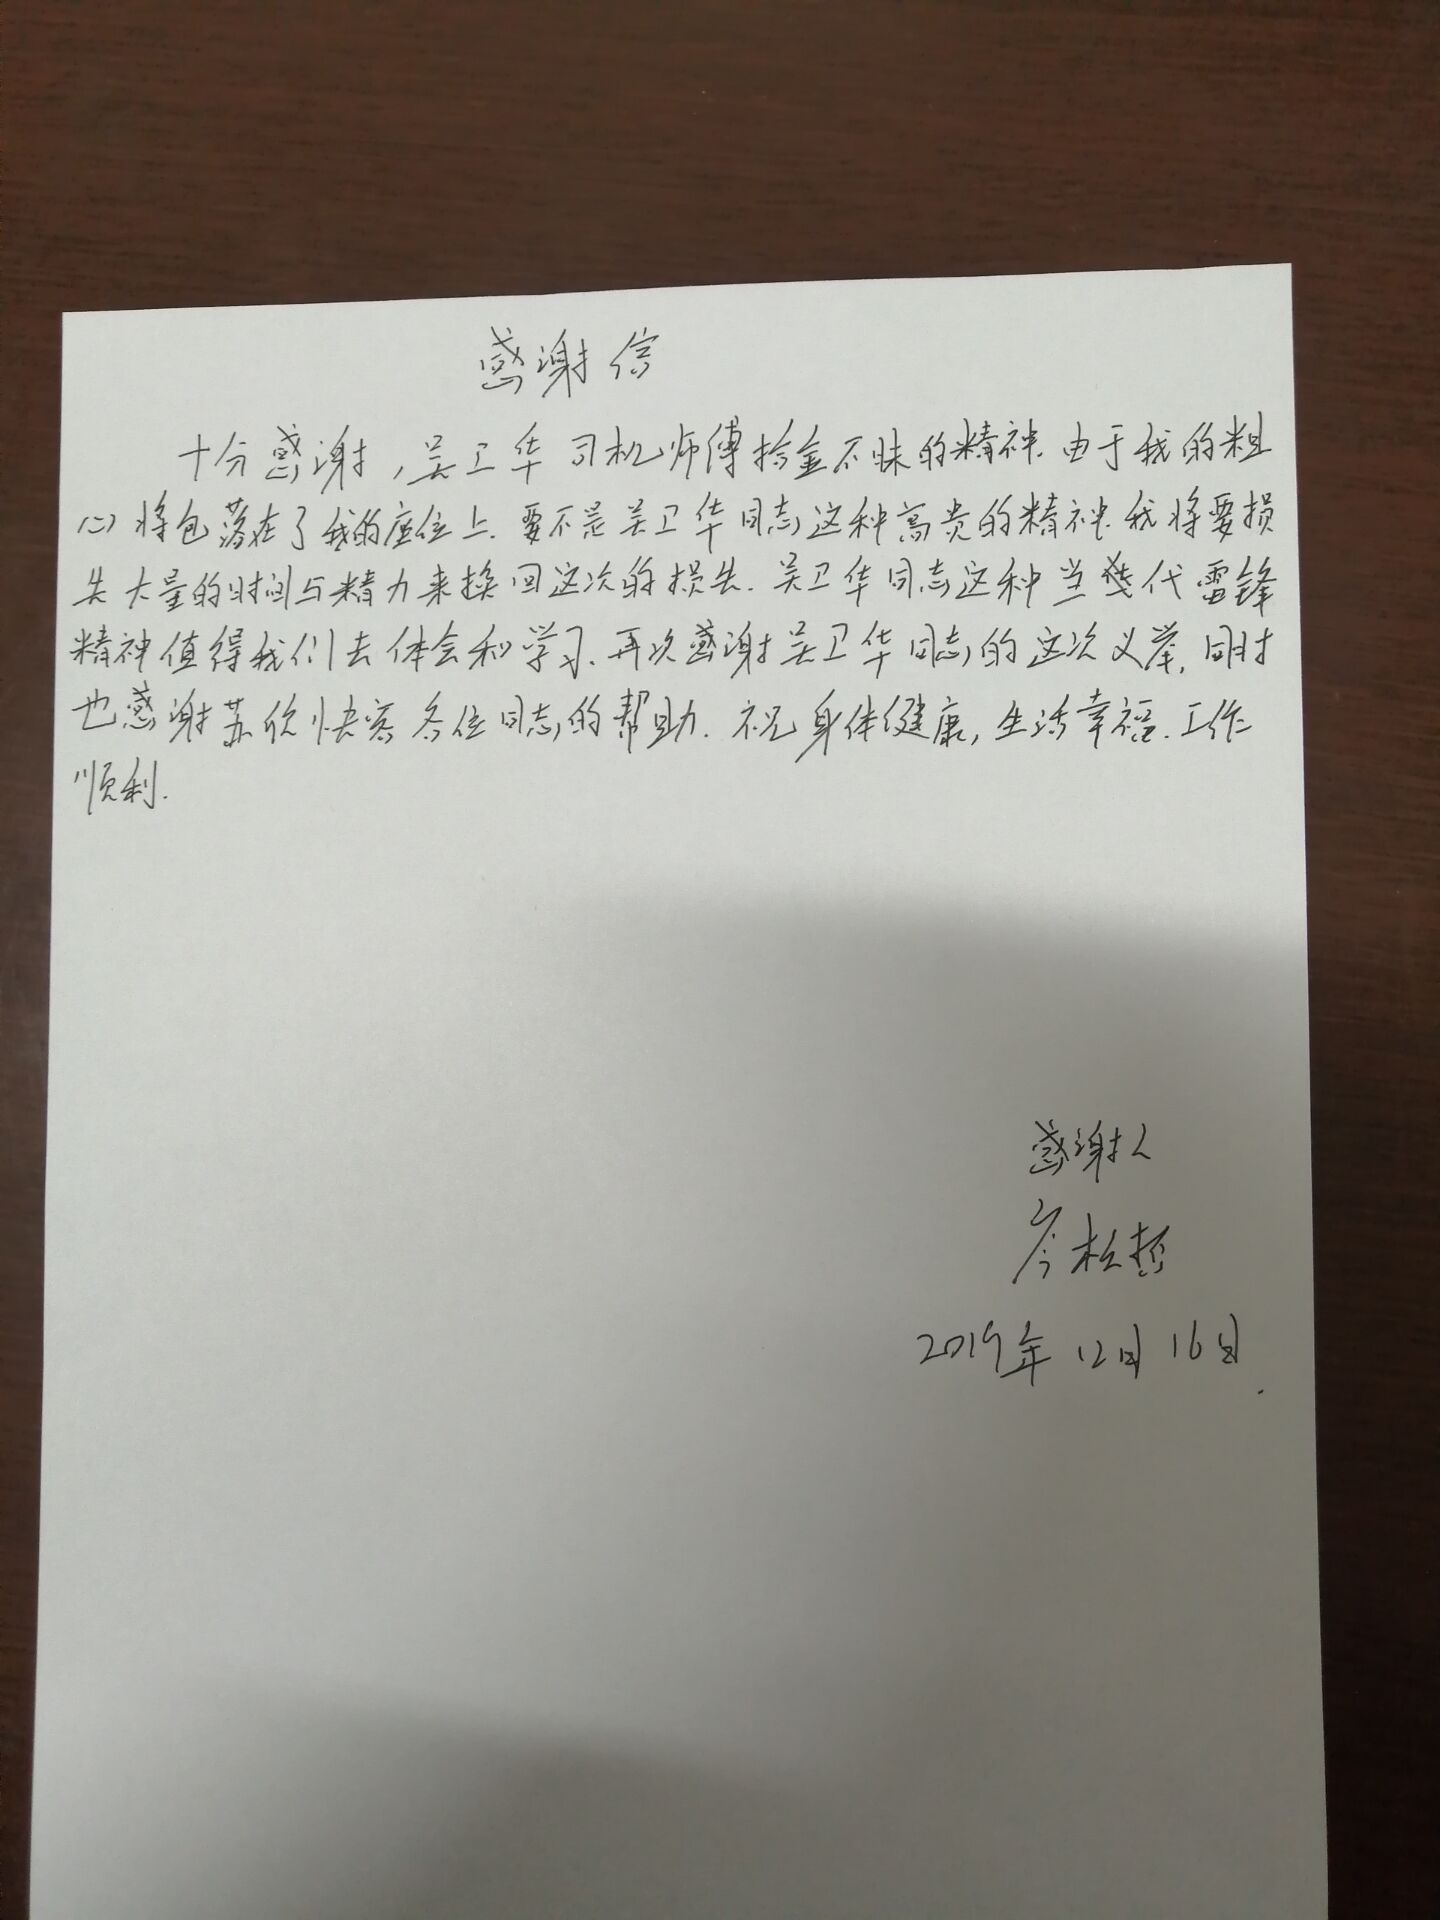 感谢信
十分感谢,吴卫华司机师傅拾金不昧的精神.由于我的粗
心将包落在了我的座位上.要不是吴卫华同志这种高贵的精神.我将要损
失大量的时间与精力来换回这次的损失.吴卫华同志这种当代雷锋
精神值得我们去体会和学习.再次感谢吴卫华同志的这次义举,同时
也感谢苏欣快客各位同志的帮助.祝身体健康,生活幸福.工作
顺利.
感谢人
岑松哲
2019年12月16日.